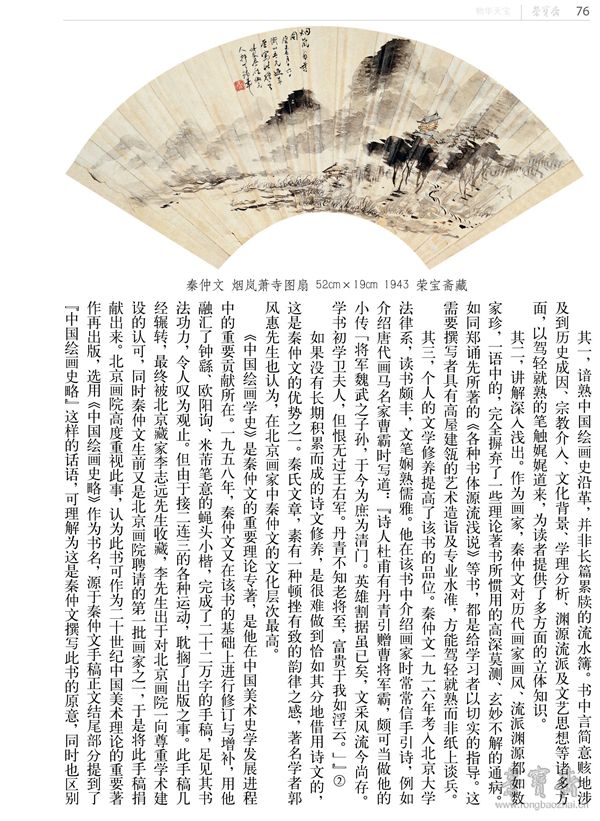 物华天宝
荣宝斋
76
秦仲文 烟岚萧寺图扇 52cm×19cm 1943 荣宝斋藏
其一，谙熟中国绘画史沿革，并非长篇累牍的流水簿。书中言简意赅地涉
及到历史成因、宗教介入、文化背景、学理分析、渊源流派及文艺思想等诸多方
面，以驾轻就熟的笔触娓娓道来，为读者提供了多方面的立体知识。
其二，讲解深入浅出。作为画家，秦仲文对历代画家画风、流派渊源都如数
家珍，一语中的，完全摒弃了一些理论著书所惯用的高深莫测、玄妙不解的通病。
如同郑诵先所著的《各种书体源流浅说》等书，都是给学习者以切实的指导。这
需要撰写者具有高屋建瓴的艺术造诣及专业水准，方能驾轻就熟而非纸上谈兵。
其三，个人的文学修养提高了该书的品位。秦仲文一九一六年考入北京大学
法律系，读书颇丰，文笔娴熟儒雅。他在该书中介绍画家时常常信手引诗，例如
介绍唐代画马名家曹霸时写道：『诗人杜甫有丹青引赠曹将军霸，颇可当做他的
小传「将军魏武之子孙，于今为庶为清门。英雄割据虽已矣，文采风流今尚存。
学书初学卫夫人，但恨无过王右军。丹青不知老将至，富贵于我如浮云。」』②
如果没有长期积累而成的诗文修养，是很难做到恰如其分地借用诗文的，
这是秦仲文的优势之一。秦氏文章，素有一种顿挫有致的韵律之感，著名学者郭
风惠先生也认为，在北京画家中秦仲文的文化层次最高。
《中国绘画学史》是秦仲文的重要理论专著，是他在中国美术史学发展进程
中的重要贡献所在。一九五八年，秦仲文又在该书的基础上进行修订与增补，用他
融汇了钟繇、欧阳询、米芾笔意的蝇头小楷，完成了二十二万字的手稿，足见其书
法功力，令人叹为观止。但由于接二连三的各种运动，耽搁了出版之事。此手稿几
经辗转，最终被北京藏家李志远先生收藏，李先生出于对北京画院一向尊重学术建
设的认可，同时秦仲文生前又是北京画院聘请的第一批画家之一，于是将此手稿捐
献出来。北京画院高度重视此事，认为此书可作为二十世纪中国美术理论的重要著
作再出版，选用《中国绘画史略》作为书名，源于秦仲文手稿正文结尾部分提到了
『中国绘画史略』这样的话语，可理解为这是秦仲文撰写此书的原意，同时也区别
荣宝斋
www.rongbaozhai.cn